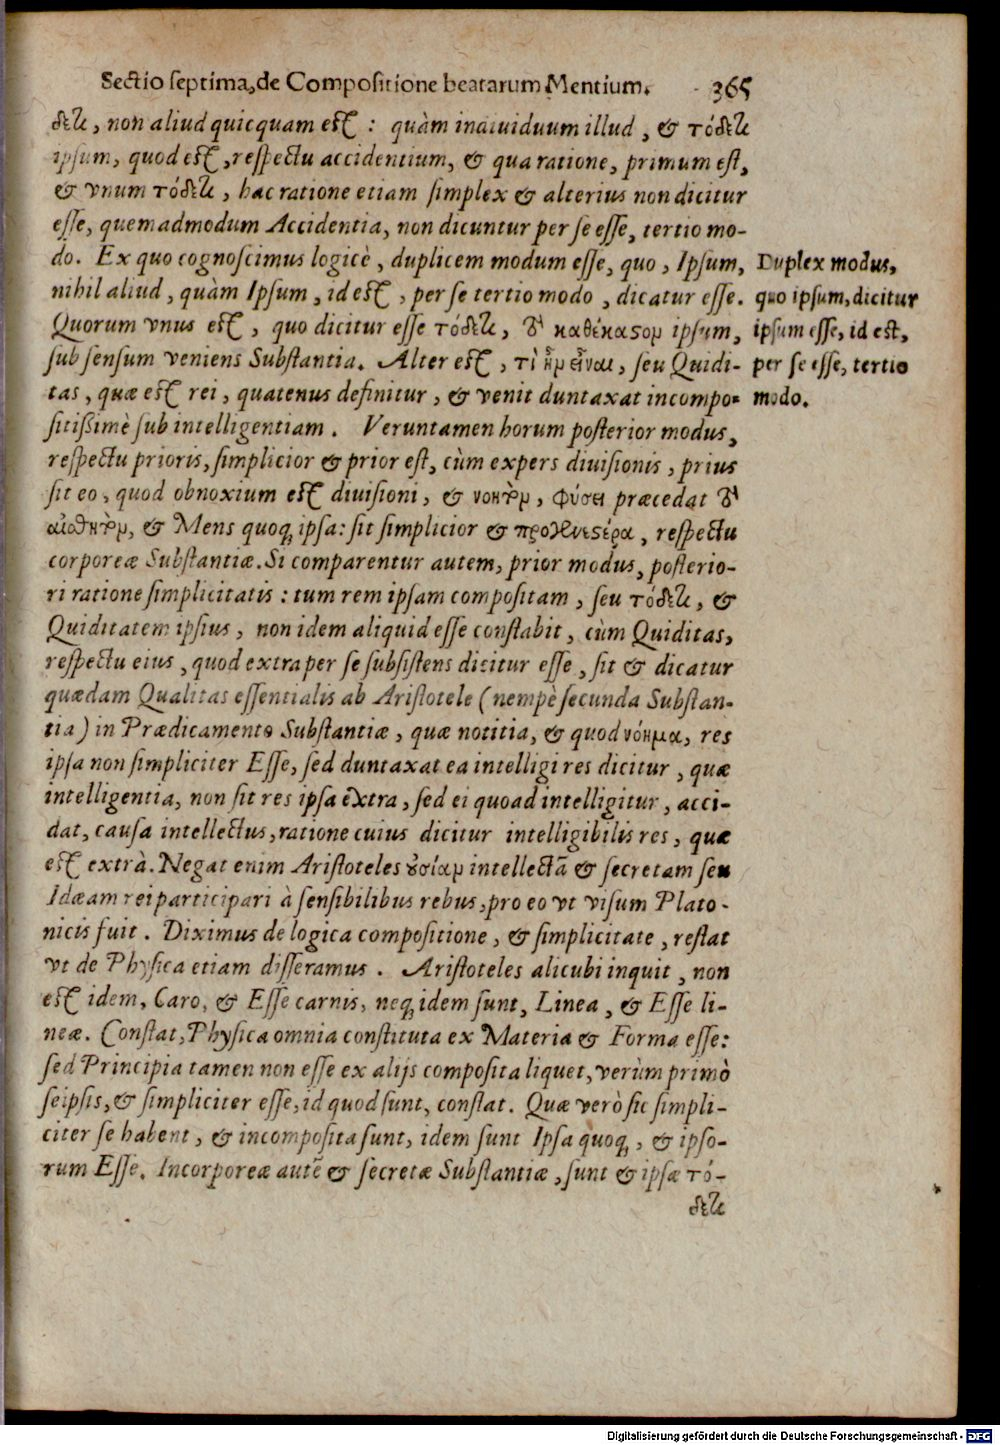 Sectio septima, de Compositione beatarum Mentium. 365
δετι, non aliud quicquam est : quàm indiuiduum illud, & τόδετι
ipsum, quod est, respectu accidentium, & qua ratione, primum est,
& vnum τόδετι, hac ratione etiam simplex & alterius non dicitur
esse, quemadmodum Accidentia, non dicuntur per se esse, tertio mo-
do. Ex quo cognoscimus logicè, duplicem modum esse, quo, Ipsum,
nihil aliud, quàm Ipsum, id est, per se tertio modo, dicatur esse.
Quorum vnus est, quo dicitur esse τόδετι, τὸ καθέκαστον ipsum,
sub sensum veniens Substantia. Alter est, τὶ ἦν εἶναι, seu Quidi-
tas, quæ est rei, quatenus definitur, & venit duntaxat incompo-
sitißimè sub intelligentiam. Veruntamen horum posterior modus,
respectu prioris, simplicior & prior est, cùm expers diuisionis, prius
sit eo, quod obnoxium est diuisioni, & νοητὸν, φύσει præcedat τὸ
αἰσθητὸν, & Mens quoq; ipsa: sit simplicior & προγενεστέρα, respectu
corporeæ Substantiæ. Si comparentur autem, prior modus, posterio-
ri ratione simplicitatis : tum rem ipsam compositam, seu τόδετι, &
Quiditatem ipsius, non idem aliquid esse constabit, cùm Quiditas,
respectu eius, quod extra per se subsistens dicitur esse, sit & dicatur
quædam Qualitas essentialis ab Aristotele (nempè secunda Substan-
tia) in Prædicamento Substantiæ, quæ notitia, & quod νόημα, res
ipsa non simpliciter Esse, sed duntaxat ea intelligi res dicitur, quæ
intelligentia, non sit res ipsa extra, sed ei quoad intelligitur, acci-
dat, causa intellectus, ratione cuius dicitur intelligibilis res, quæ
est extrà. Negat enim Aristoteles οὐσίαν intellectā & secretam seu
Idæam rei participari à sensibilibus rebus, pro eo vt visum Plato-
nicis fuit. Diximus de logica compositione, & simplicitate, restat
vt de Physica etiam disseramus. Aristoteles alicubi inquit, non
est idem, Caro, & Esse carnis, neq; idem sunt, Linea, & Esse li-
neæ. Constat, Physica omnia constituta ex Materia & Forma esse:
sed Principia tamen non esse ex alijs composita liquet, verùm primò
seipsis, & simpliciter esse, id quod sunt, constat. Quæ verò sic simpli-
citer se habent, & incomposita sunt, idem sunt Ipsa quoq;, & ipso-
rum Esse. Incorporeæ autē & secretæ Substantiæ, sunt & ipsæ τό-
δετι
Duplex modus,
quo ipsum, dicitur
ipsum esse, id est,
per se esse, tertio
modo.
Digitalisierung gefördert durch die Deutsche Forschungsgemeinschaft - DFG